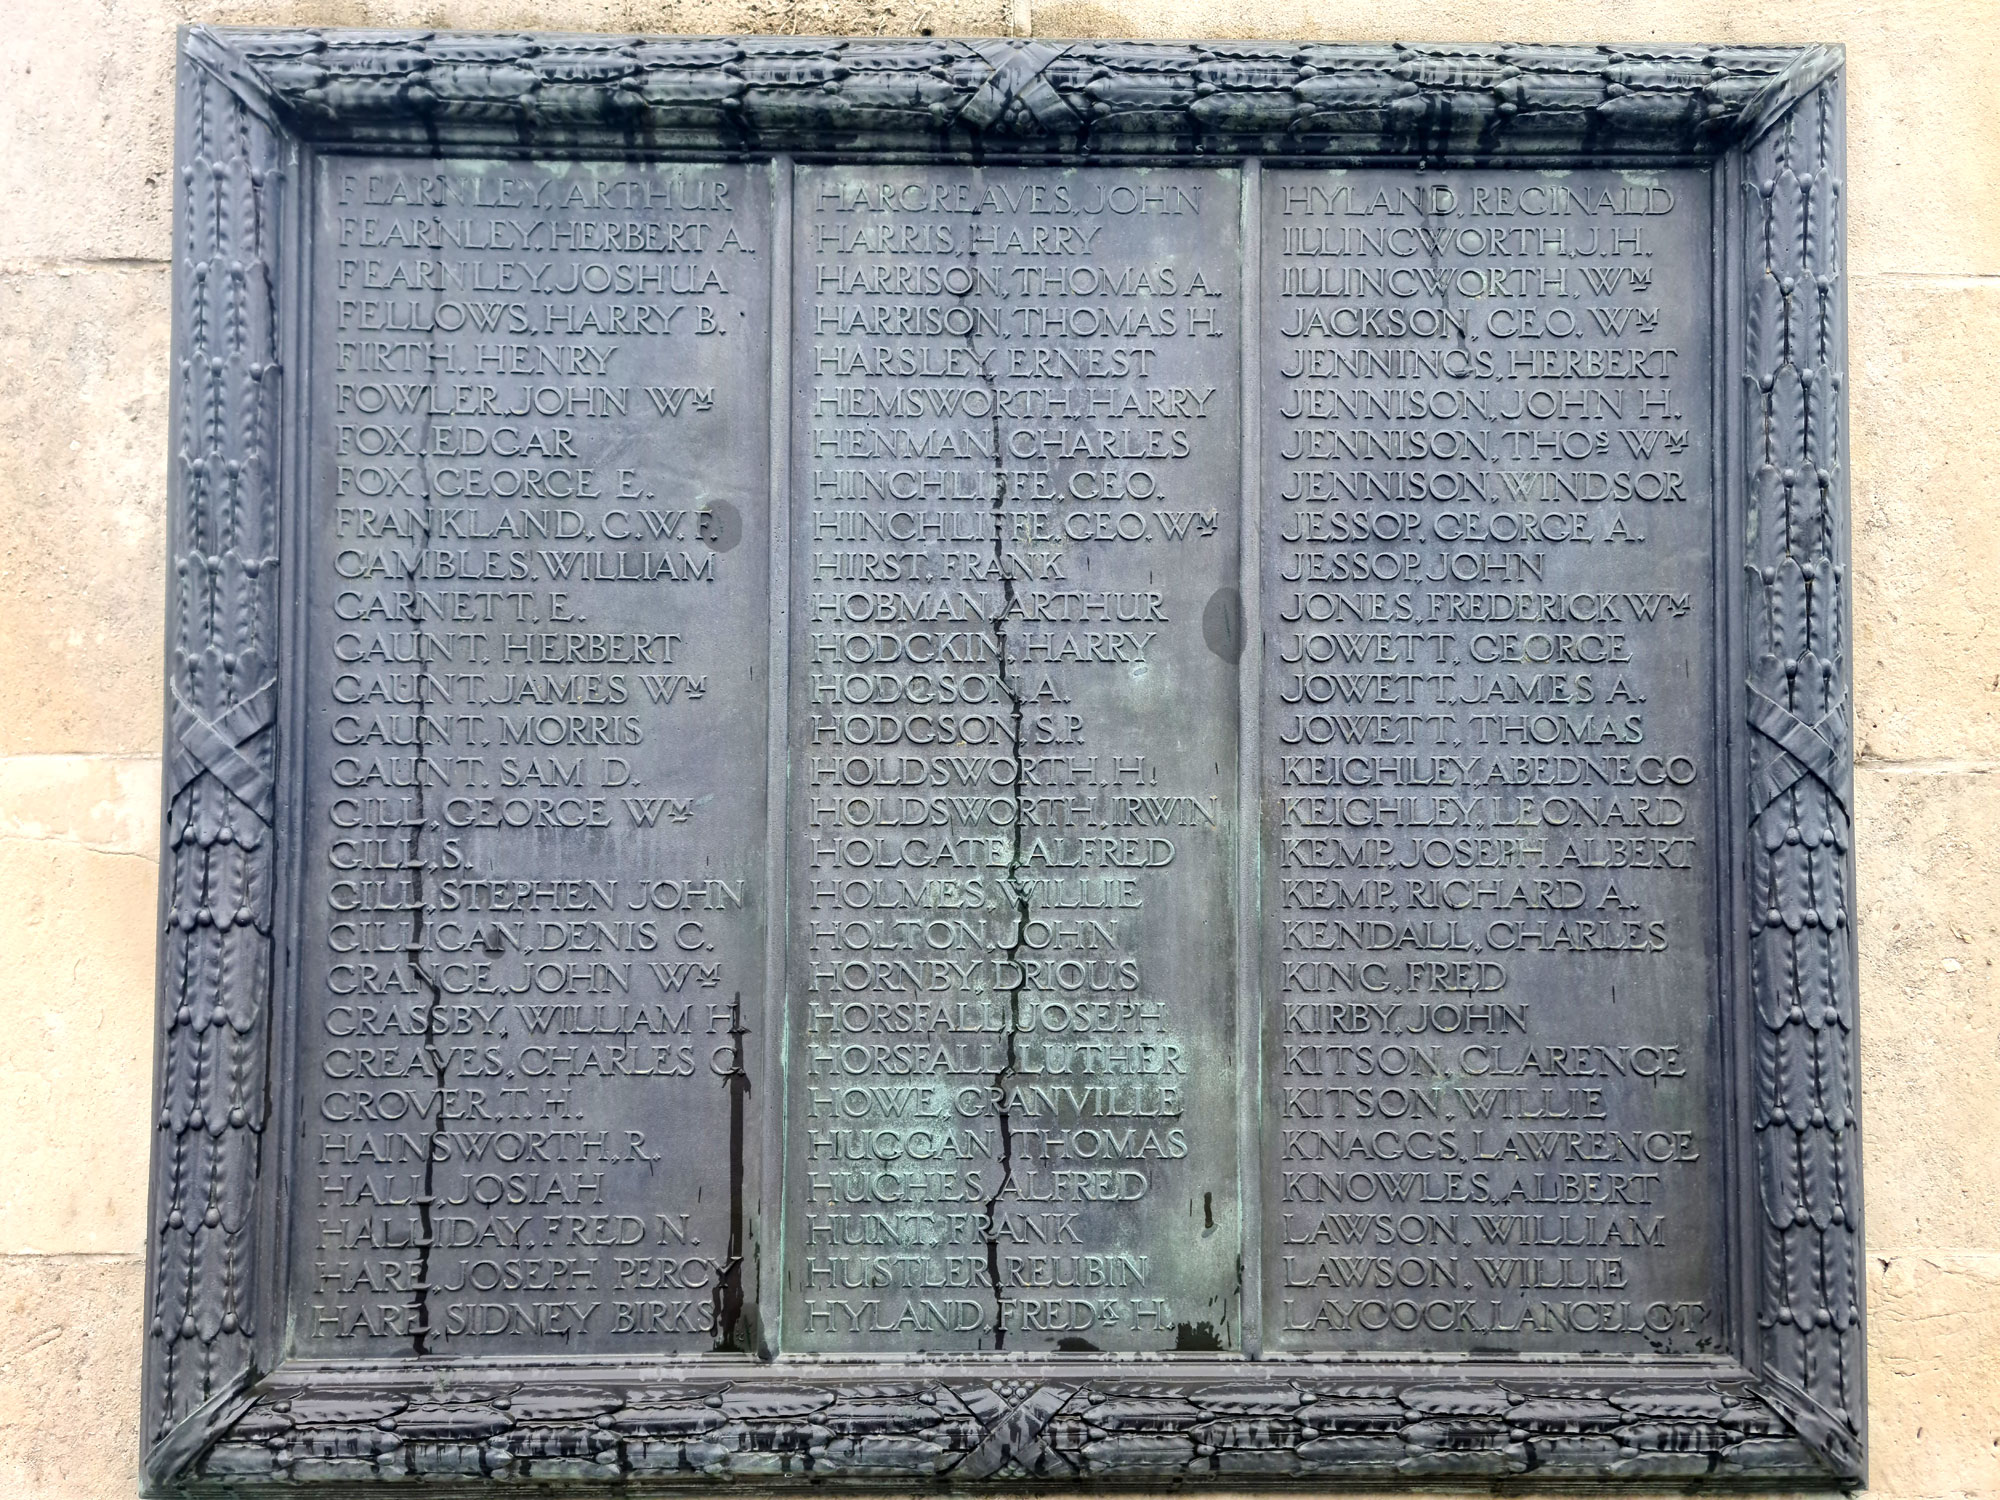 FEARNLEY, ARTHUR
FEARNLEY, HERBERT A.
FEARNLEY, JOSHUA
FELLOWS, HARRY B.
FIRTH, HENRY
FOWLER, JOHN WM
FOX, EDGAR
FOX, GEORGE E.
FRANKLAND, G.W.F.
GAMBLES, WILLIAM
GARNETT, E.
GAUNT, HERBERT
GAUNT, JAMES WM
GAUNT, MORRIS
GAUNT, SAM D.
GILL, GEORGE WM
GILL, S.
GILL, STEPHEN JOHN
GILLIGAN, DENIS C.
GRANGE, JOHN WM
GRASSBY, WILLIAM H.
GREAVES, CHARLES G.
GROVER, T. H.
HAINSWORTH, R.
HALL, JOSIAH
HALLIDAY, FRED N.
HARE, JOSEPH PERCY
HARE, SIDNEY BIRKS
HARGREAVES, JOHN
HARRIS, HARRY
HARRISON, THOMAS A.
HARRISON, THOMAS H.
HARSLEY, ERNEST
HEMSWORTH, HARRY
HENMAN, CHARLES
HINCHLIFFE, GEO.
HINCHLIFFE, GEO. WM
HIRST, FRANK
HOBMAN, ARTHUR
HODGKIN, HARRY
HODGSON, A.
HODGSON, S.P.
HOLDSWORTH, H.
HOLDSWORTH, IRWIN
HOLGATE, ALFRED
HOLMES, WILLIE
HOLTON, JOHN
HORNBY, DRIOUS
HORSFALL, JOSEPH
HORSFALL, LUTHER
HOWE, GRANVILLE
HUGGAN, THOMAS
HUGHES, ALFRED
HUNT, FRANK
HUSTLER, REUBIN
HYLAND, FREDK H.
HYLAND, REGINALD
ILLINGWORTH, J. H.
ILLINGWORTH, WM
JACKSON, GEO. WM
JENNINGS, HERBERT
JENNISON, JOHN H.
JENNISON, THOS WM
JENNISON, WINDSOR
JESSOP, GEORGE A.
JESSOP, JOHN
JONES, FREDERICK WM
JOWETT, GEORGE
JOWETT, JAMES A.
JOWETT, THOMAS
KEIGHLEY, ABEDNEGO
KEIGHLEY, LEONARD
KEMP, JOSEPH ALBERT
KEMP, RICHARD A.
KENDALL, CHARLES
KING, FRED
KIRBY, JOHN
KITSON, CLARENCE
KITSON, WILLIE
KNAGGS, LAWRENCE
KNOWLES, ALBERT
LAWSON, WILLIAM
LAWSON, WILLIE
LAYCOCK, LANCELOT